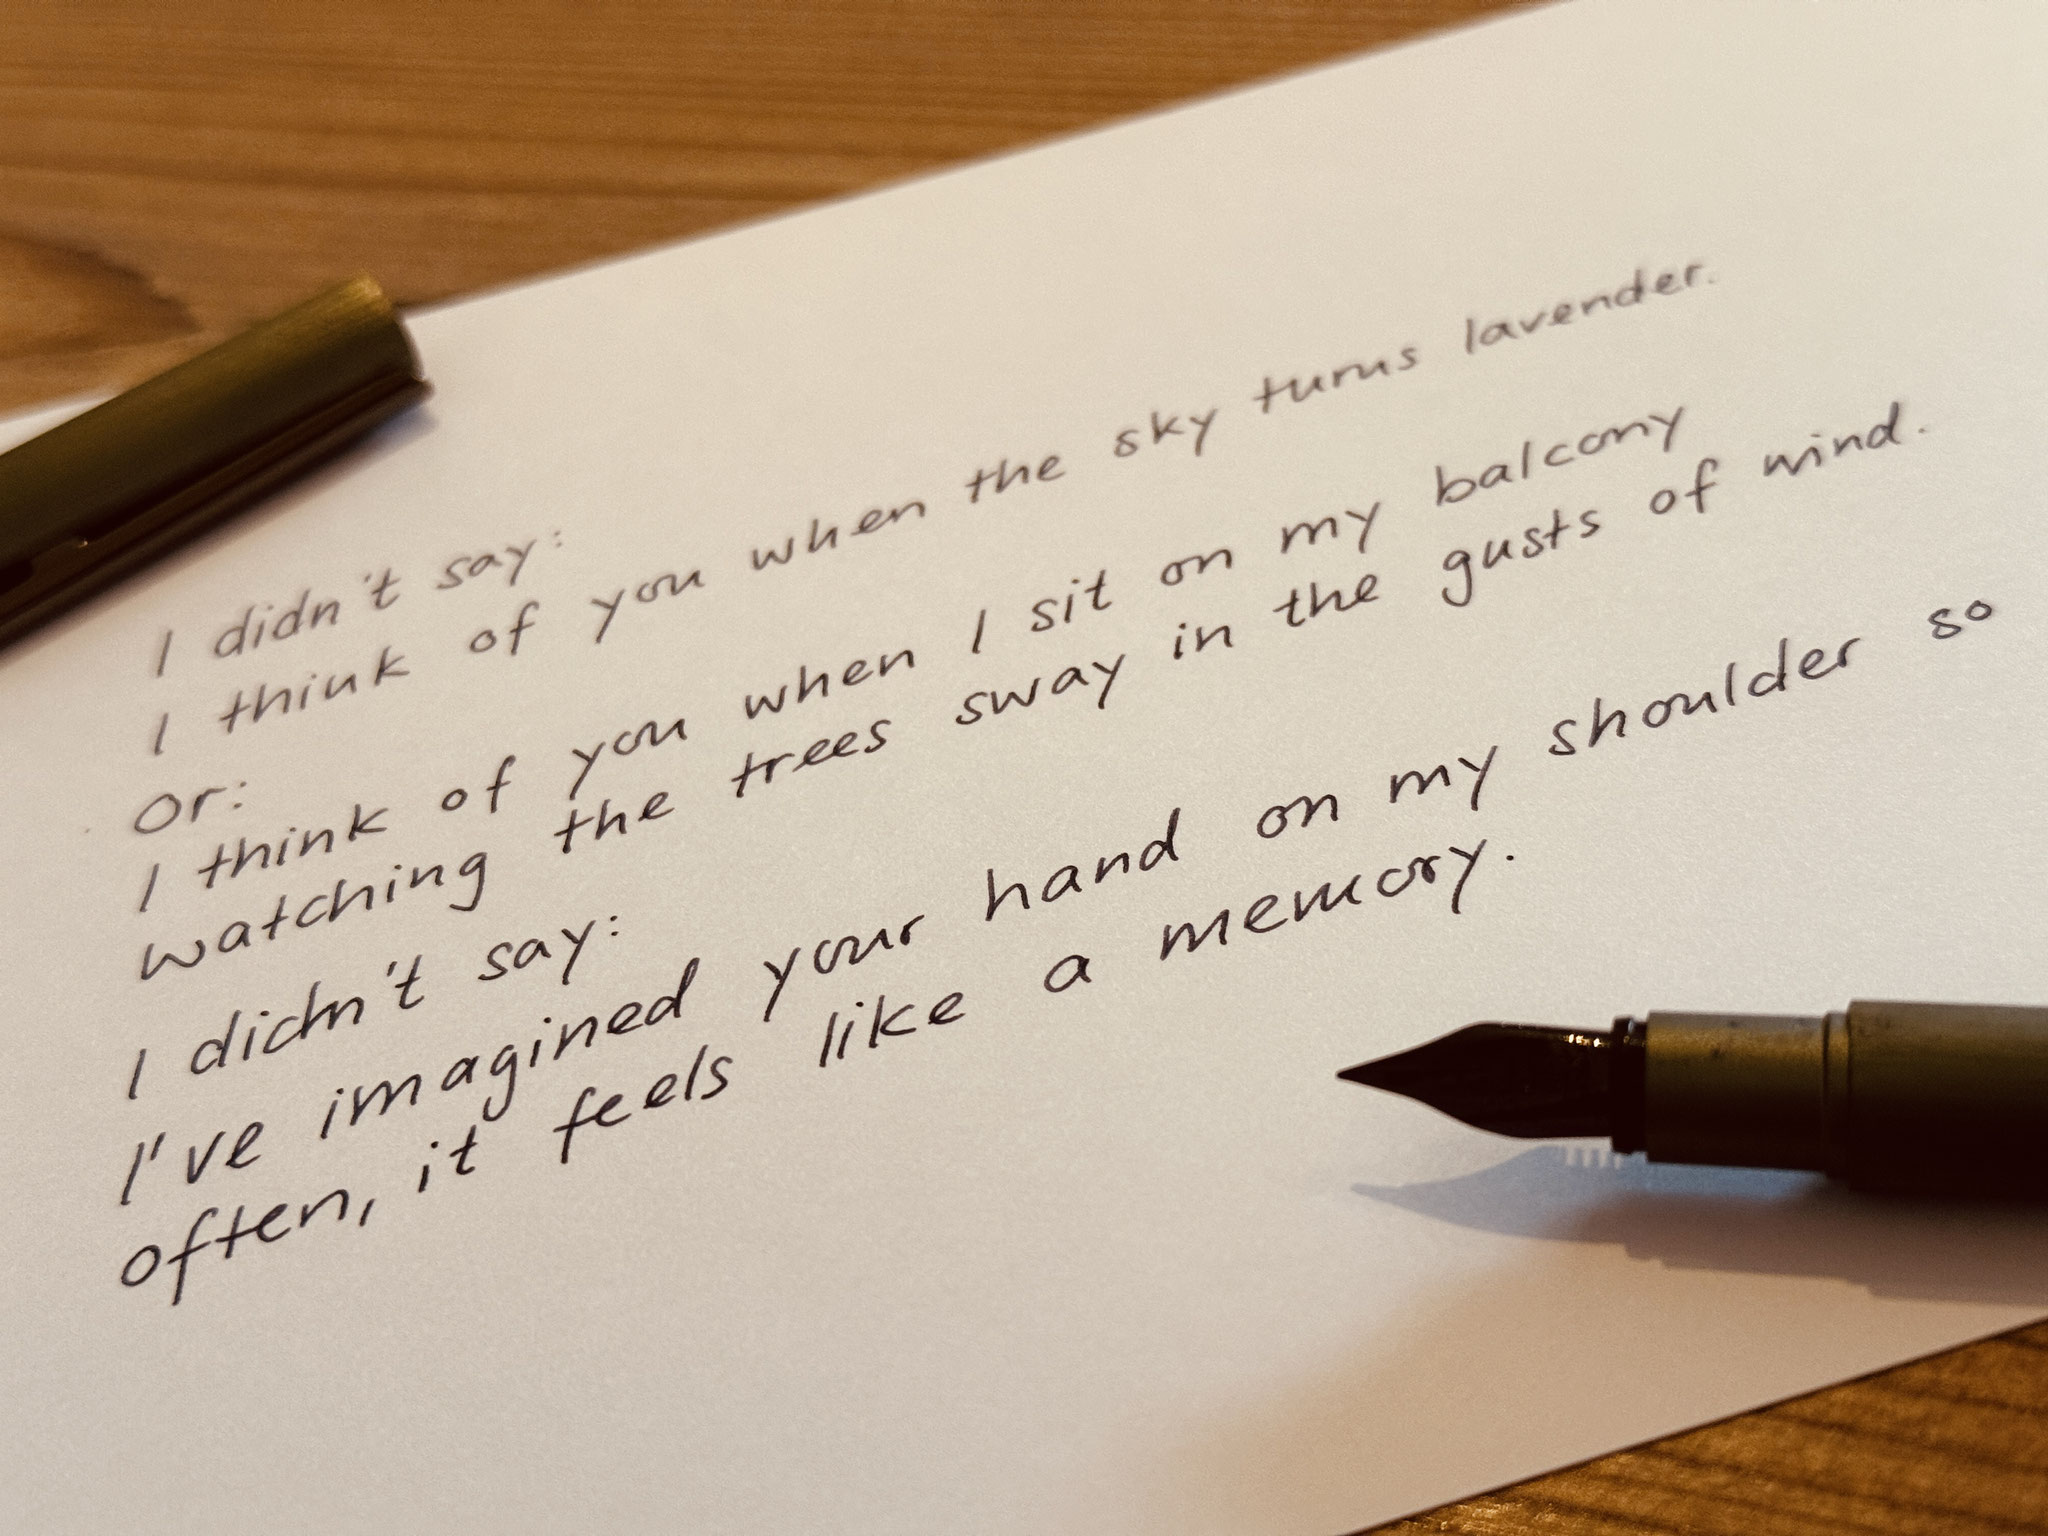 I didn't say:
I think of you when the sky turns lavender.
Or:
I think of you when I sit on my balcony
watching the trees sway in the gusts of wind.
I didn't say:
I've imagined your hand on my shoulder so
often, it feels like a memory.